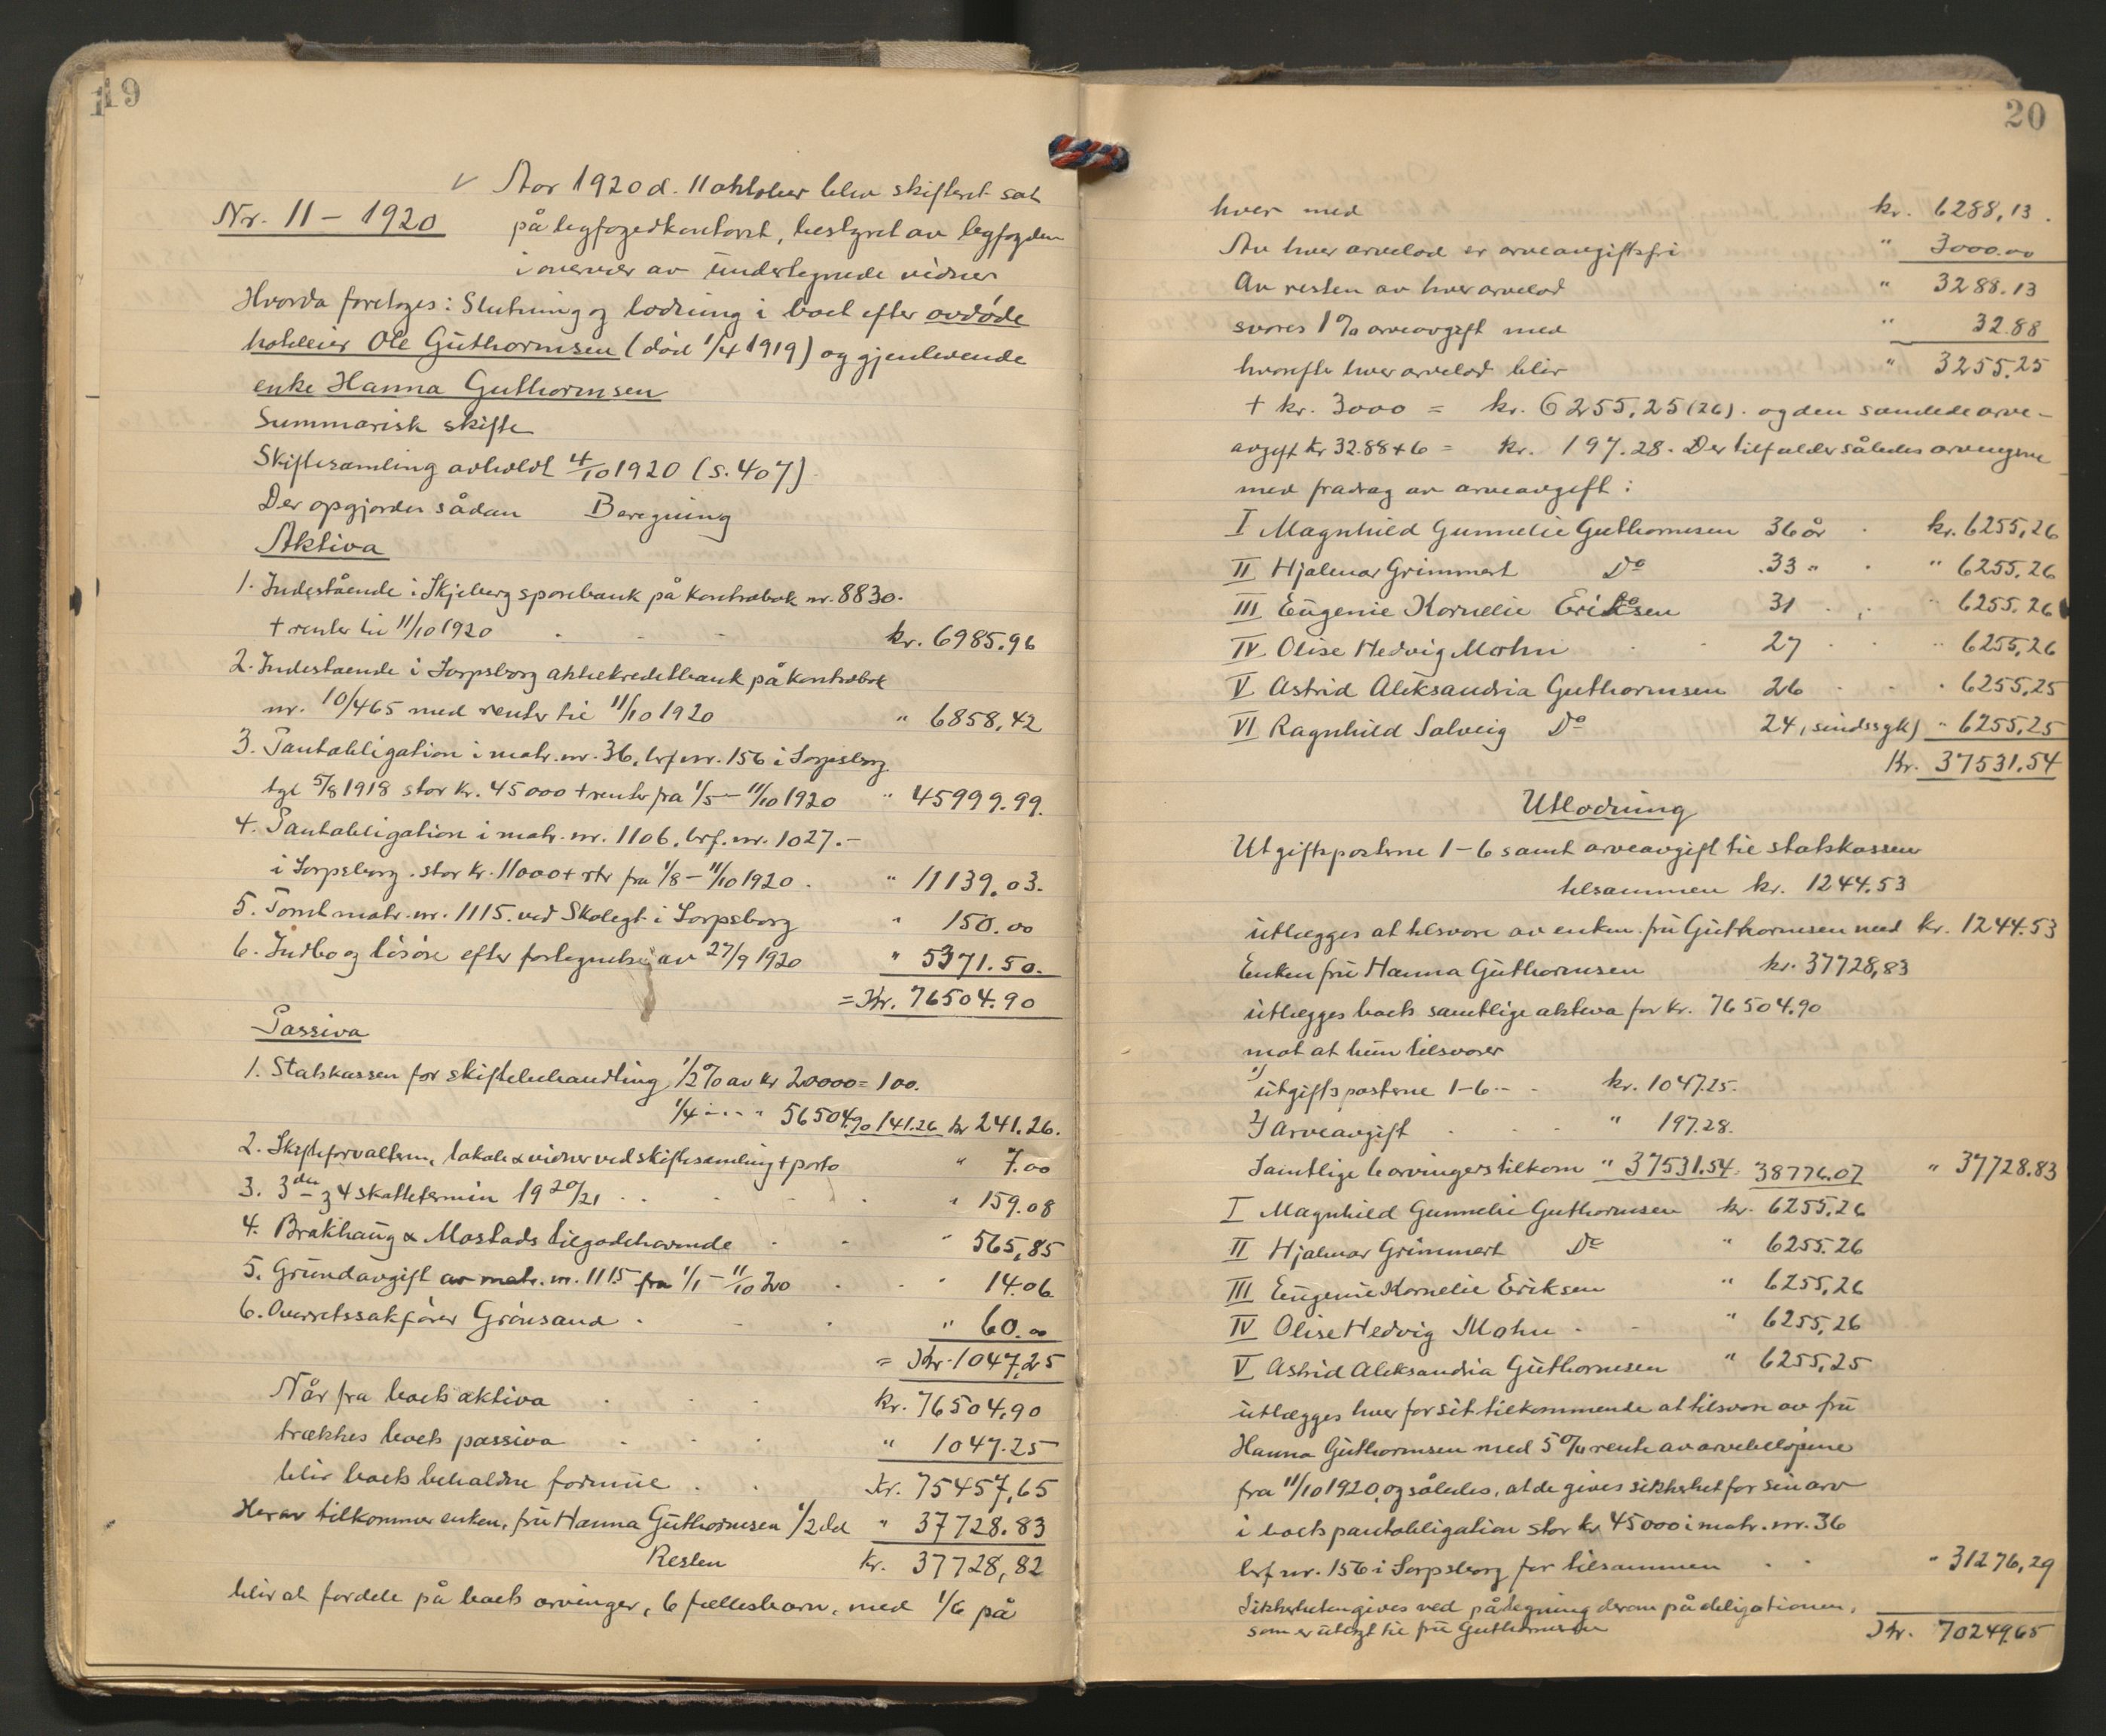 19
Nr. 11 – 1920
✓ Aar 1920 d. 11 oktober blev skifteret sat
på byfogedkontoret, bestyret av byfogden
i overvær av undertegnede vidner
Hvorda foretoges: Slutning og lodning i boet efter avdøde
hoteleier Ole Guthormsen (död 1/4 1919) og gjenlevende
enke Hanna Guthormsen
Summarisk skifte
Skiftesamling avholdt 4/10 1920 (s. 407).
Der opgjordes sådan Beregning
Aktiva
1. Indestående i Skjeberg sparebank på kontrabok nr. 8830.
+ renter til 11/10 1920 . - - kr. 6985.96
2. Indestaende i Sarpsborg aktiekreditbank på kontrabok
nr. 10/465 med renter til 11/10 1920 " 6858,42
3. Pantobligation i matr. nr. 36, brf nr. 156 i Sarpsborg
tgl 5/8 1918 stor kr. 45000 + renter fra 1/5 – 11/10 1920 " 45999.99.
4. Pantobligation i matr. nr. 1106, brf. nr. 1027. –
i Sarpsborg. stor kr. 11000 + rtr fra 1/8 – 11/10 1920 . " 11139.03.
5. Tomt matr. nr. 1115. ved Skolegt. i Sarpsborg " 150.00
6. Indbo og lösöre efter fortegnelse av 27/9 1920 " 5371.50.
= Kr. 76504.90
Passiva
1. Statskassen for skiftebehandling 1/2 % av kr 20000 = 100.
1/4 - .. - " 56504.90 141.26 kr 241.26.
2. Skifteforvalteren, lokale & vidner ved skiftesamling + porto " 7.00
3. 3die & 4 skattetermin 1920/21 . . - - . " 159.08
4. Brakhaug & Mostads tilgodehavende . - " 565,85
5. Grundavgift av matr. nr. 1115 fra 1/1 – 11/10 20 . . " 14.06
6. Overretssakförer Grönsand . - . " 60.00
= Kr. 1047,25
Når fra boets aktiva . . . kr. 76504,90
trækkes boets passiva . . . " 1047.25
blir boets beholdne formue . . kr. 75457,65
Herav tilkommer enken, fru Hanna Guthormsen 1/2 del " 37728.83
Resten kr. 37728,82
blir at fordele på boets arvinger, 6 fællesbarn, med 1/6 på
20
hver med kr. 6288,13.
Av hver arvelod er arveavgiftsfri " 3000.00
Av resten av hver arvelod " 3288.13
svares 1 % arveavgift med " 32.88
hvorefter hver arvelod blir " 3255.25
+ kr. 3000 = kr. 6255,25 (26). og den samlede arve-
avgift kr 32.88 + 6 = kr. 197.28. Der tilfalder således arvingerne
med fradrag av arveavgift:
I Magnhild Gunnelie Guthormsen 36 år . kr. 6255,26
II Hjalmar Grimmert Do 33 " . " 6255,26
III Eugenie Kornelie Eriksen 31 . , " 6255,26
IV Olise Hedvig Mohn . . 27 . . " 6255,26
V Astrid Aleksandria Guthormsen 26 . . " 6255,25
VI Ragnhild Solveig Do 24, sindssyk) " 6255,25
Kr. 37531.54
Utlodning
Utgiftsposterne 1–6 samt arveavgift til statskassen
tilsammen kr. 1244.53
utlægges at tilsvare av enken fru Guthormsen med kr. 1244.53
Enken fru Hanna Guthormsen kr. 37728,83
utlægges boets samtlige aktiva for kr. 76504.90
mot at hun tilsvarer
1) utgiftsposterne 1–6 - - . kr. 1047.25.
2) Arveavgift . . . " 197.28.
Samtlige 6 arvingers tilkom " 37531.54. 38776.07 " 37728.83
I Magnhild Gunnelie Guthormsen kr. 6255,26
II Hjalmar Grimmert Do " 6255.26
III Eugenie Kornelie Eriksen " 6255,26
IV Olise Hedvig Mohn . - " 6255,26
V Astrid Aleksandria Guthormsen " 6255,25
utlægges hver for sit tilkommende at tilsvare av fru
Hanna Guthormsen med 5 % rente av arvebelöpene
fra 11/10 1920, og således, at de gives sikkerhet for sin arv
i boets pantobligation stor kr 45000 i matr. nr. 36
brf nr. 156 i Sarpsborg for tilsammen . . " 31276,29
Sikkerheten gives ved påtegning derom på obligationen,
som er utlagt til fru Guthormsen Kr. 70249.65